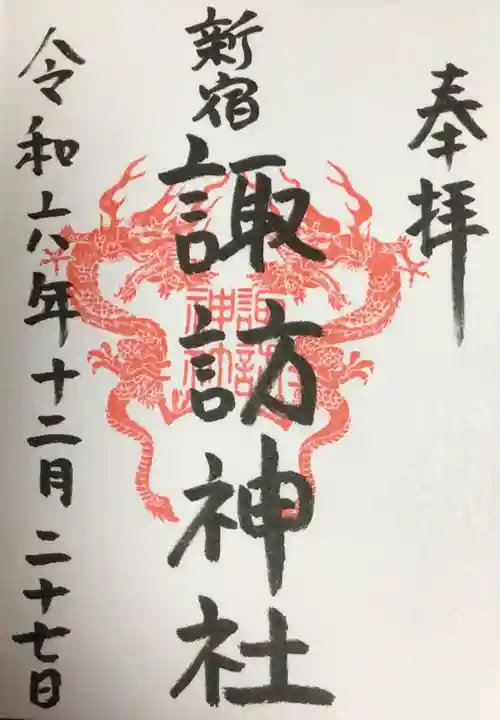 奉拝
新宿
諏訪神社
諏訪
神社
令和六年十二月二十七日